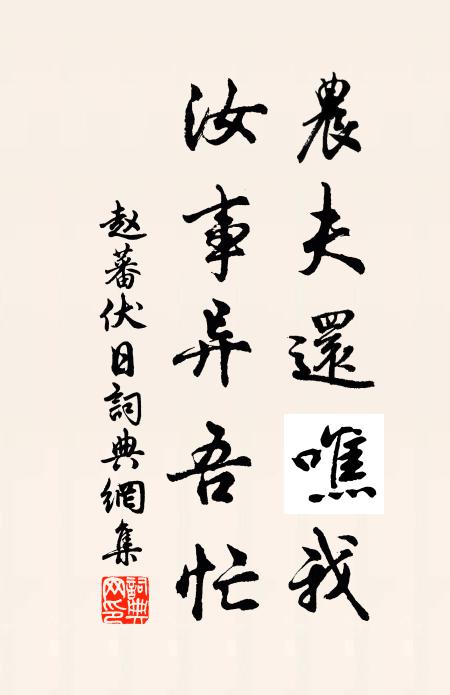 農夫還噍我
汝事异吾忙
赵蕃伏日詞典網集
詞典網印